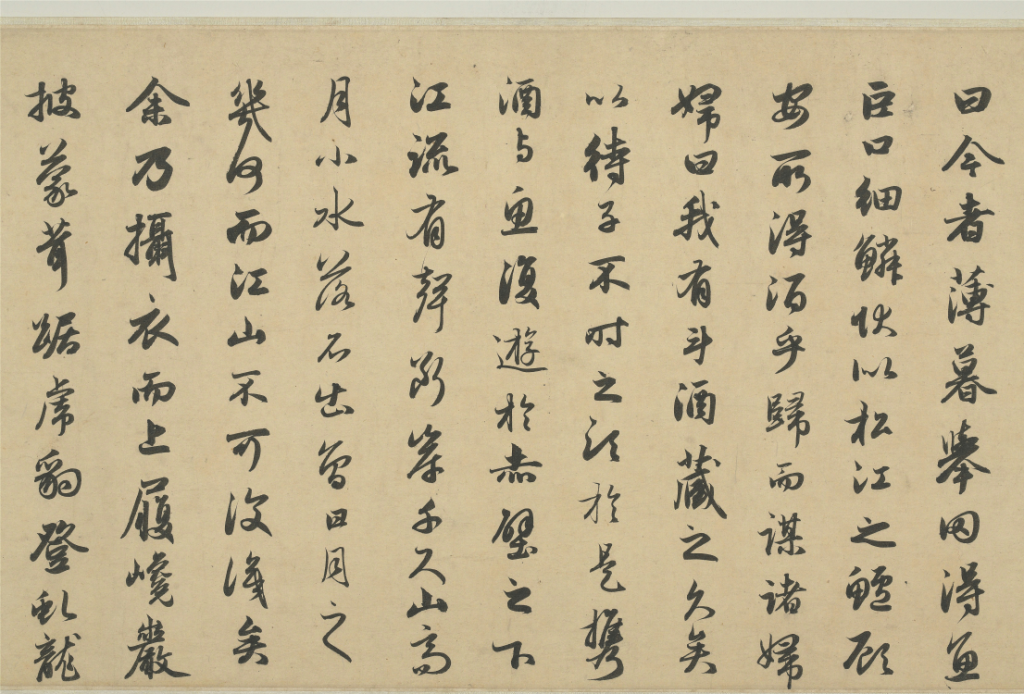 曰今者薄暮舉网得魚
巨口細鱗狀似松江之鱸顧
安所得酒乎歸而謀諸婦
婦曰我有斗酒藏之久矣
以待子不时之須於是攜
酒与魚復遊於赤壁之下
江流有聲斷岸千尺山高
月小水落石出曾日月之
幾何而江山不可復識矣
余乃攝衣而上履巉巖
披蒙茸踞虎豹登虬龍